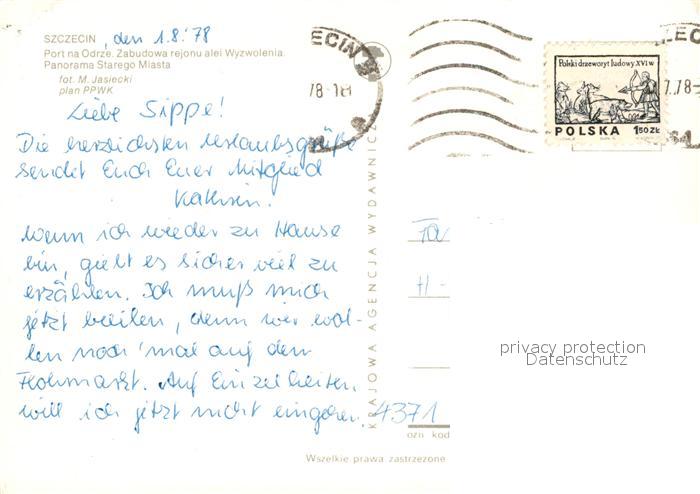 SZCZECIN, den 1.8.'78
Port na Odrze. Zabudowa rejonu alei Wyzwolenia.
Panorama Starego Miasta
fot. M. Jasiecki
plan PPWK
Liebe Sippe!
Die herzlichsten Urlaubsgrüße
sendet Euch Euer Mitglied
Kathrin.
Wenn ich wieder zu Hause
bin, giebt es sicher viel zu
erzählen. Ich muß mich
jetzt beeilen, denn wir wol-
len noch 'mal auf den
Flohmarkt. Auf Einzelheiten
will ich jetzt nicht eingehen.
KRAJOWA AGENCJA WYDAWNICZ
ECIN
78-18
Polski drzeworyt ludowy XVI w
POLSKA 1,50 ZŁ
ZEC
7.78-
Fa
H-
4371
ozn kod
privacy protection
Datenschutz
Wszelkie prawa zastrzeżone